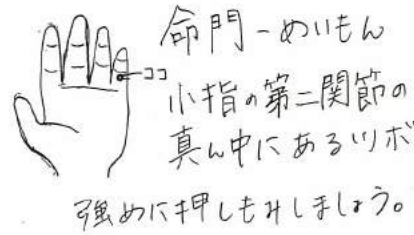 命門-めいもん
ココ
小指の第二関節の
真ん中にあるツボ
強めに押しもみしましょう。